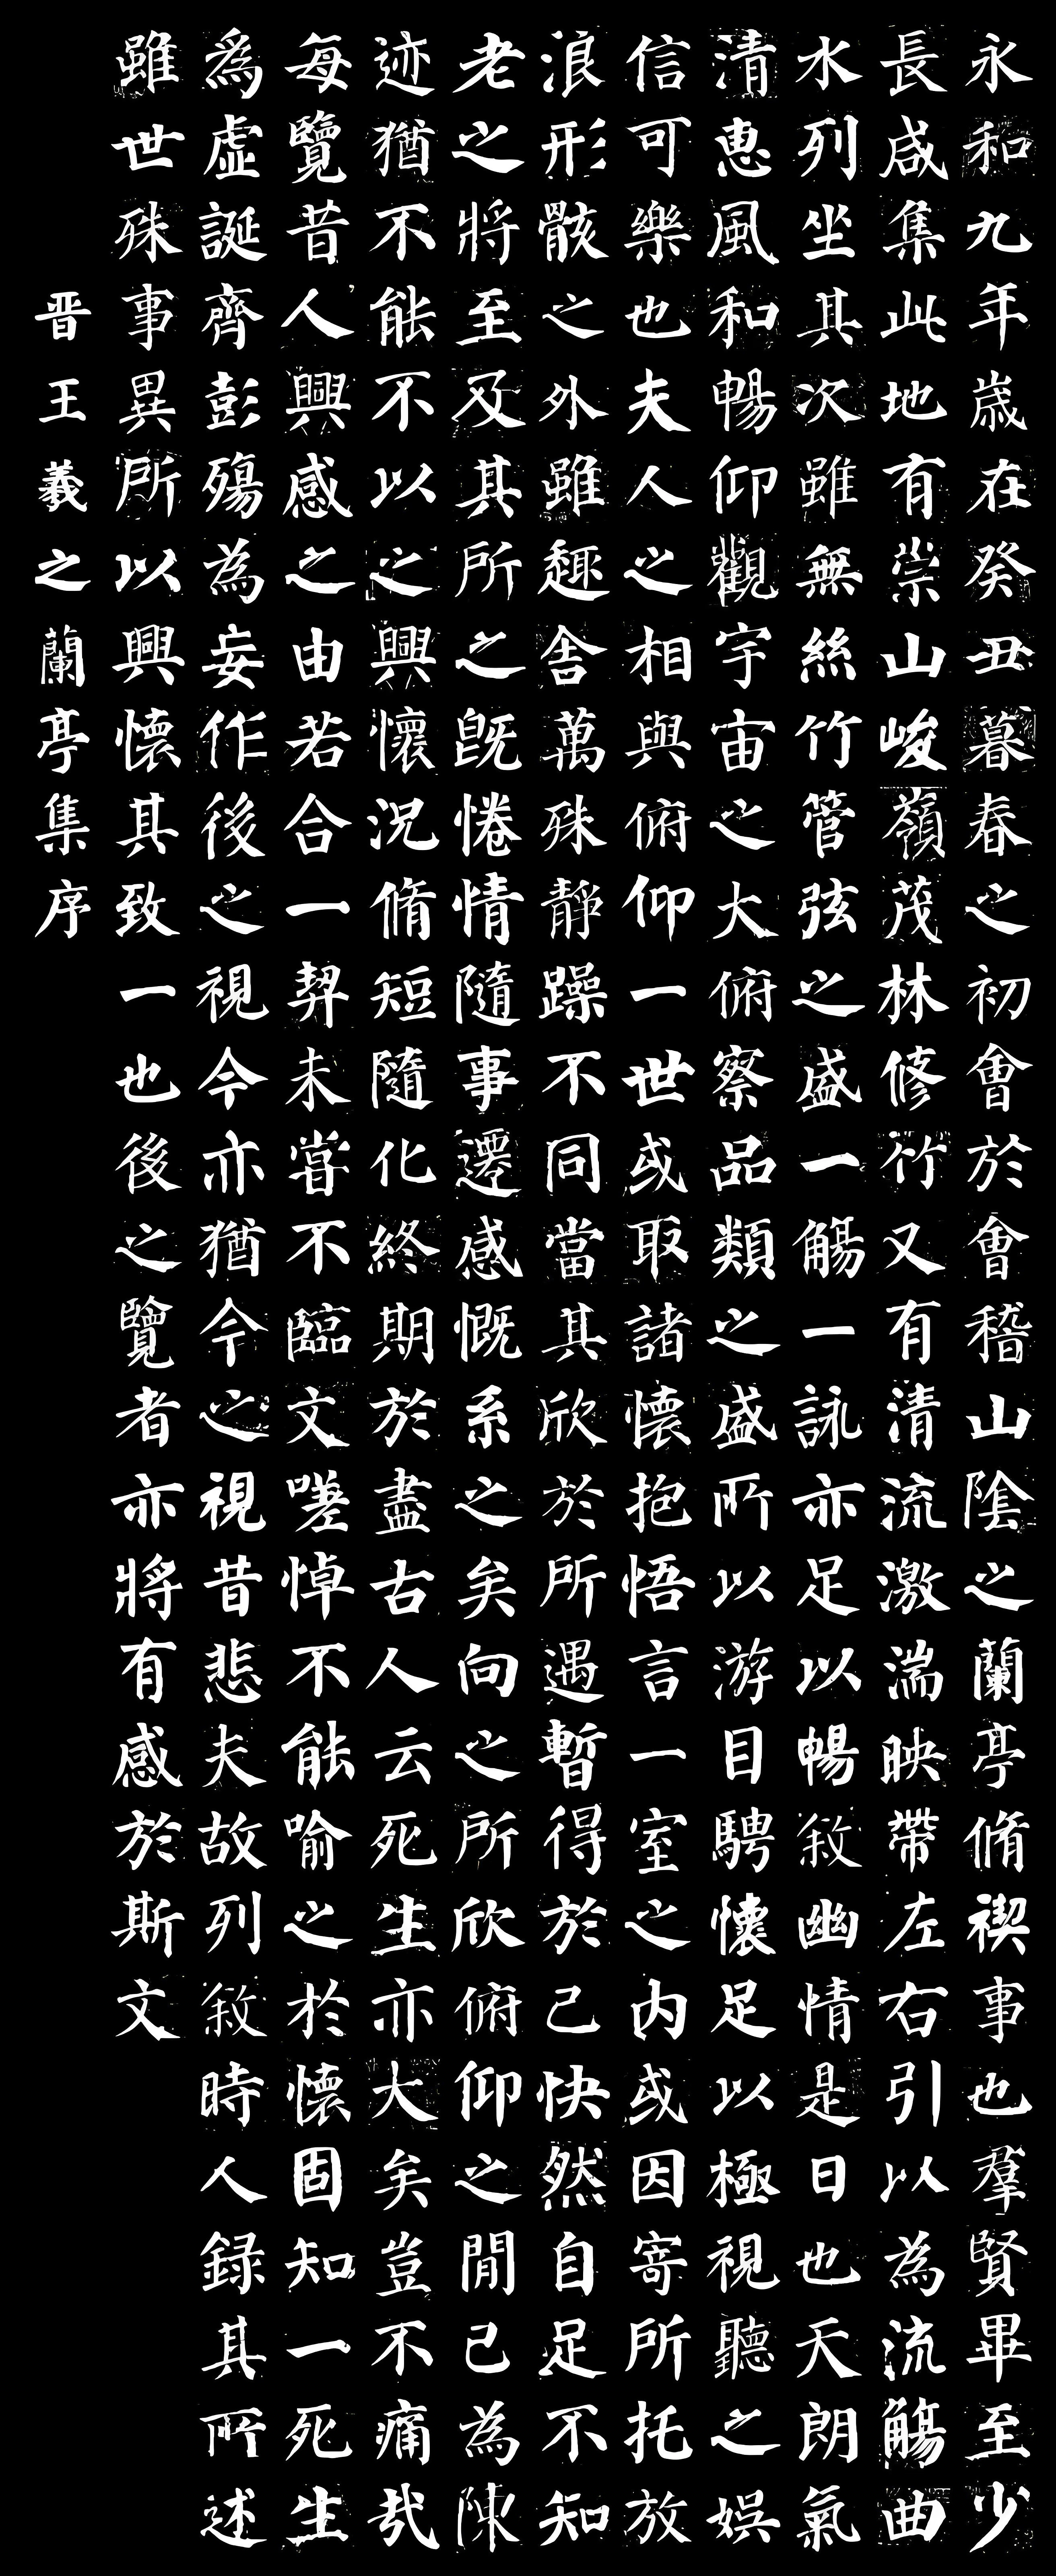 永和九年歲在癸丑暮春之初會於會稽山陰之蘭亭脩禊事也羣賢畢至少
長咸集此地有崇山峻嶺茂林修竹又有清流激湍映帶左右引以為流觴曲
水列坐其次雖無絲竹管弦之盛一觴一詠亦足以暢敘幽情是日也天朗氣
清惠風和暢仰觀宇宙之大俯察品類之盛所以游目騁懷足以極視聽之娛
信可樂也夫人之相與俯仰一世或取諸懷抱悟言一室之内或因寄所托放
浪形骸之外雖趣舍萬殊靜躁不同當其欣於所遇暫得於己快然自足不知
老之將至及其所之既惓情隨事遷感慨系之矣向之所欣俯仰之閒已為陳
迹猶不能不以之興懷況脩短隨化終期於盡古人云死生亦大矣豈不痛哉
每覽昔人興感之由若合一契未嘗不臨文嗟悼不能喻之於懷固知一死生
為虛誕齊彭殤為妄作後之視今亦猶今之視昔悲夫故列敘時人錄其所述
雖世殊事異所以興懷其致一也後之覽者亦將有感於斯文
晋王羲之蘭亭集序